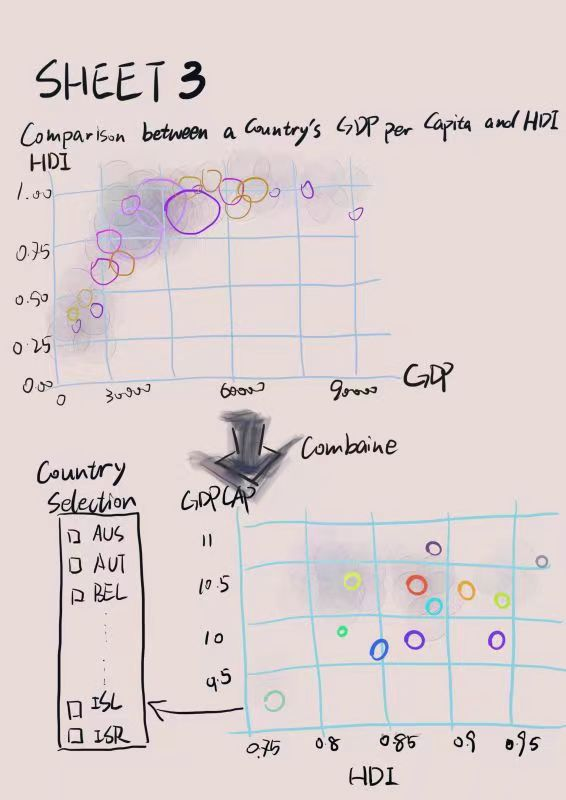 SHEET 3
Comparison between a Country's GDP per Capita and HDI
HDI
1.00
0.75
0.50
0.25
0.00
0 30000 60000 90000 GDP
Combaine
Country
Selection
AUS
AUT
BEL
ISL
ISR
GDPCAP
11
10.5
10
9.5
0.75 0.8 0.85 0.9 0.95
HDI